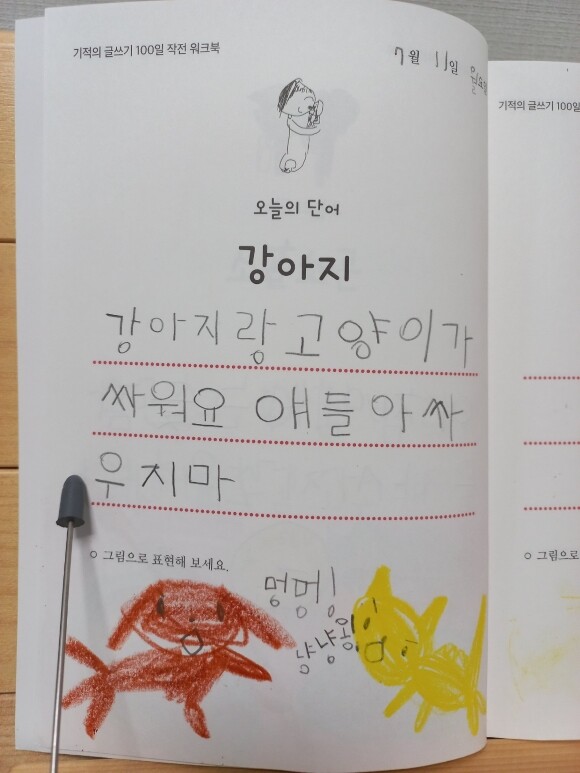 기적의 글쓰기 100일 작전 워크북
7월 11일 일요일
오늘의 단어
강아지
강아지랑 고양이가
싸워요 얘들아 싸
우지마
그림으로 표현해 보세요.
멍멍!
냥냥웡!
기적의 글쓰기 100일
그림으로